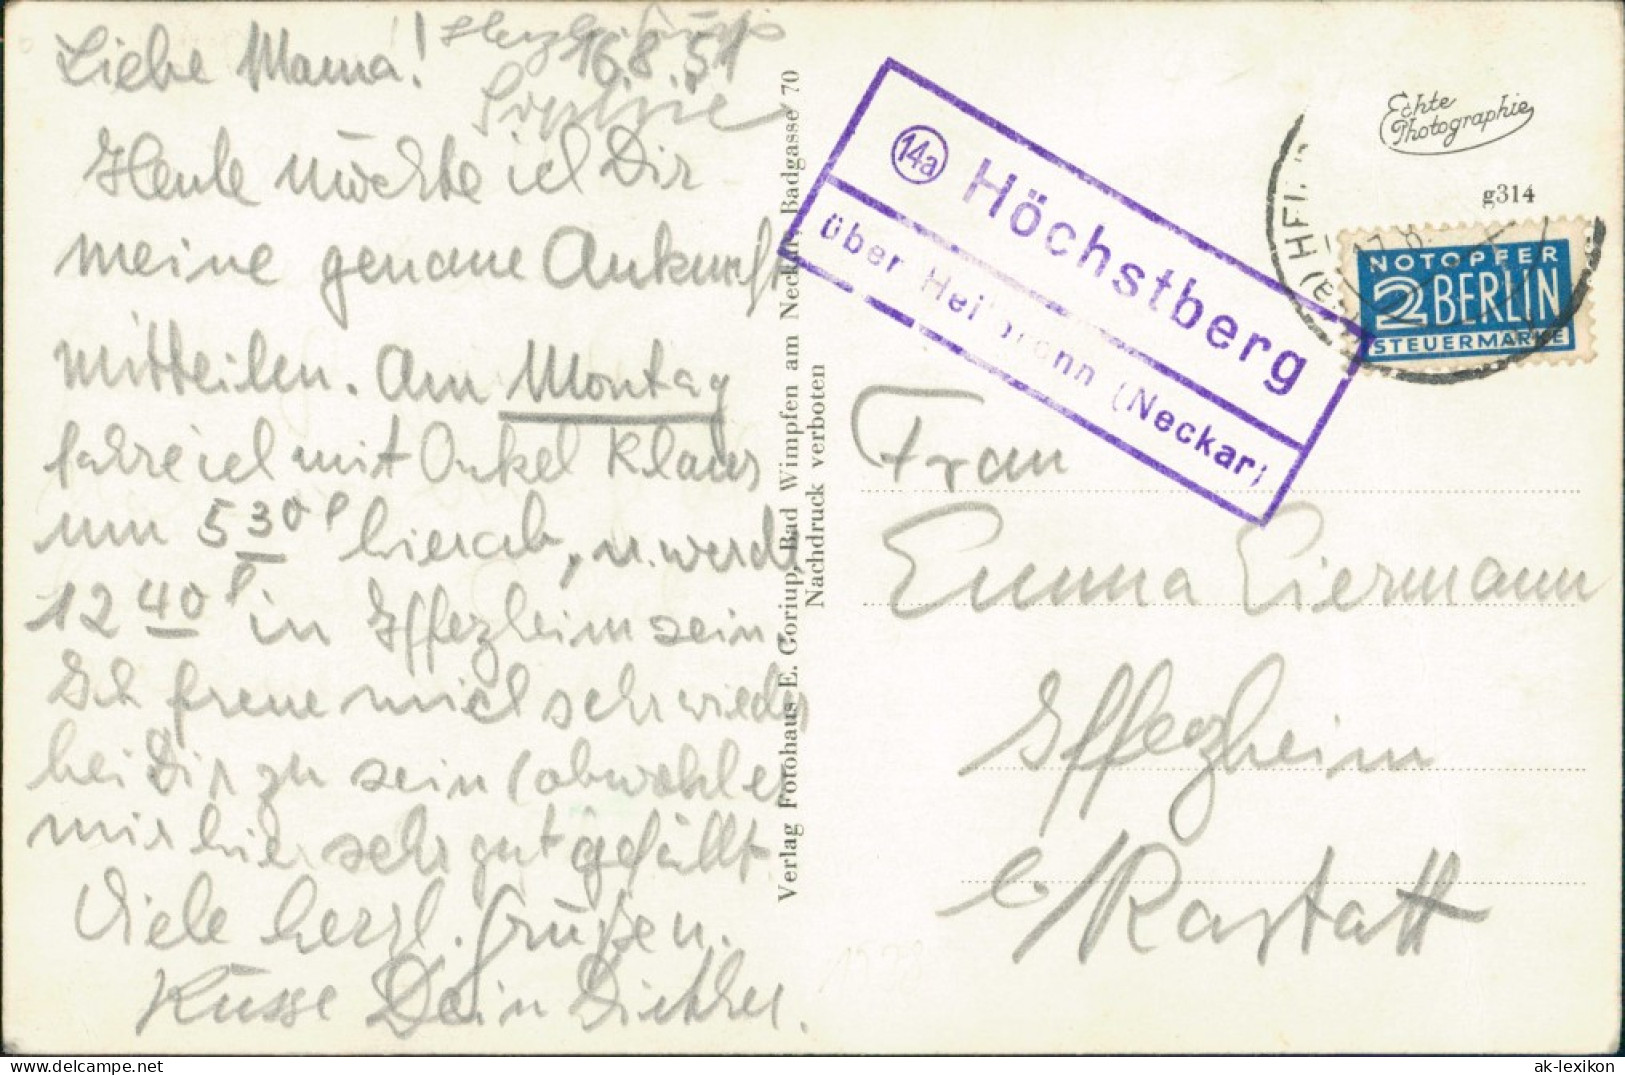 Liebe Mama! 16.8.51
Herzl. Grüße
Sophie
Heute möchte ich Dir
meine genaue Ankunft
mitteilen. Am Montag
fahre ich mit Onkel Klaus
um 5 30 hier ab, u. werde
12 40 in Iffezheim sein.
Ich freue mich sehr wieder
bei Dir zu sein (obwohl es
mir hier sehr gut gefällt.
Viele herzl. Grüße u.
Küsse Dein Diether.
Verlag Fotohaus E. Coriup, Bad Wimpfen am Neckar, Badgasse 70
Nachdruck verboten
14a Höchstberg
über Heilbronn (Neckar)
Echte
Photographie
g314
NOTOPFER
2 BERLIN
STEUERMARKE
Frau
Emma Eiermann
Iffezheim
b/Rastatt
ak-lexikon